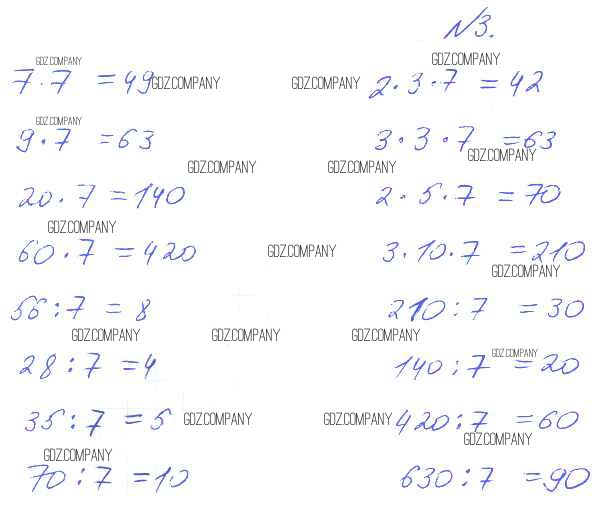 N3.
GDZ.COMPANY GDZ.COMPANY
7·7 = 49 GDZ.COMPANY GDZ.COMPANY 2·3·7 = 42
GDZ.COMPANY
9·7 = 63 3·3·7 = 63
GDZ.COMPANY
GDZ.COMPANY GDZ.COMPANY
20·7 = 140 2·5·7 = 70
GDZ.COMPANY
60·7 = 420 GDZ.COMPANY 3·10·7 = 210
GDZ.COMPANY
56:7 = 8 210:7 = 30
GDZ.COMPANY GDZ.COMPANY GDZ.COMPANY
GDZ.COMPANY
28:7 = 4 140:7 = 20
35:7 = 5 GDZ.COMPANY GDZ.COMPANY 420:7 = 60
GDZ.COMPANY
GDZ.COMPANY
70:7 = 10 630:7 = 90